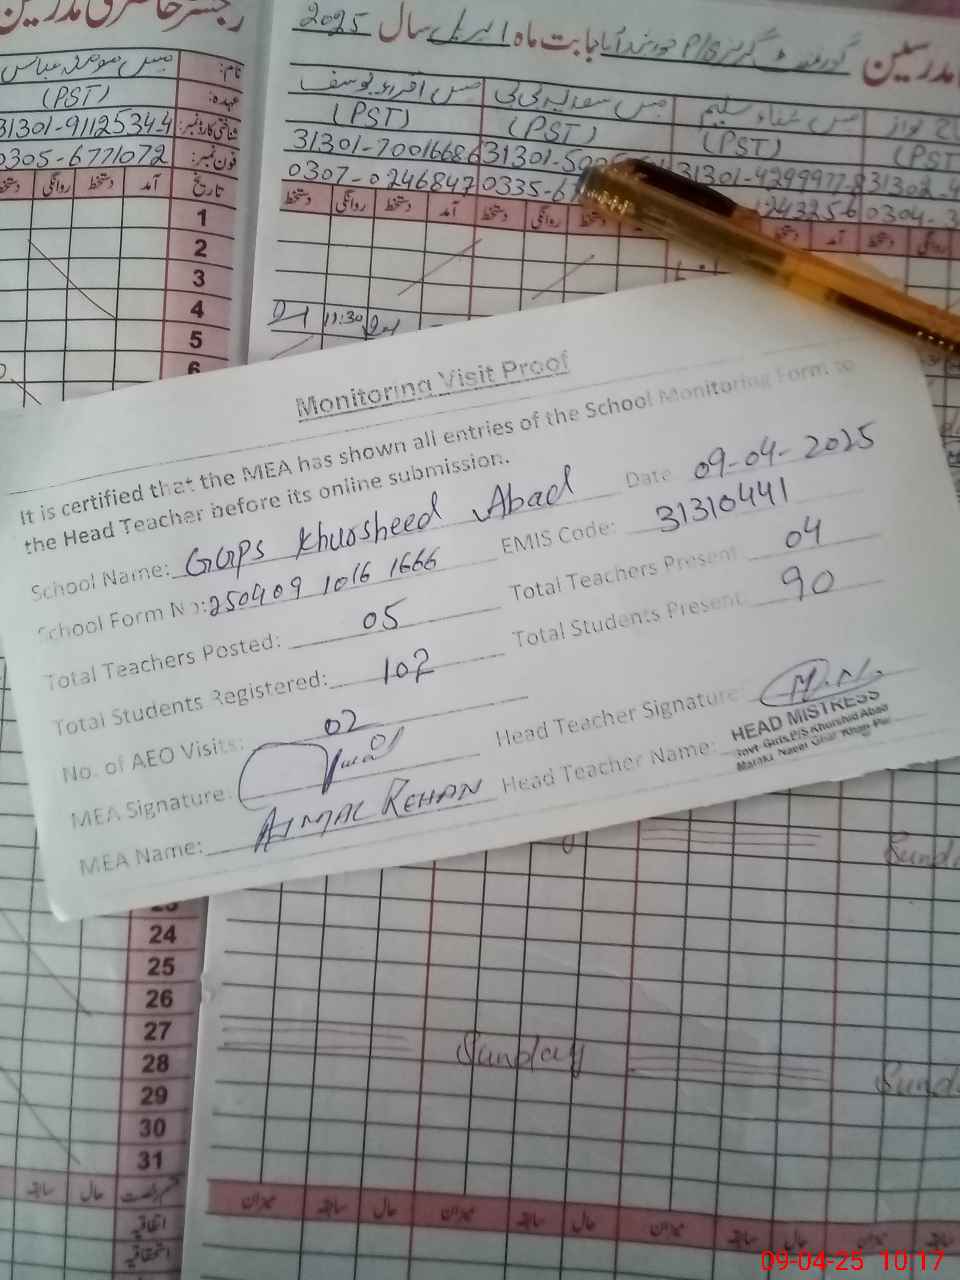 رجسٹر حاضری مدرسین
نام:
عہدہ: (PST)
شناختی کارڈ نمبر: 31301-9112534-4
فون نمبر: 0305-6771072
تاریخ آمد دستخط روانگی دستخط
1
2
3
4
5
6
مدرسین گورنمنٹ گرلز P/S خورشید آباد بابت ماہ اپریل سال 2025
مس اقراء یوسف
مس سعدیہ بی بی
مس ثناء سلیم
(PST) (PST) (PST) (PST
31301-7001668-6 31301- 31301-4299977-8 31302-
0307-0246847 0335-67 43256 0304-3
دستخط روانگی دستخط آمد دستخط روانگی دستخط دستخط آمد دستخط روانگی
11:30
Monitoring Visit Proof
It is certified that the MEA has shown all entries of the School Monitoring Form to
the Head Teacher before its online submission.
School Name: GGPS Khursheed Abad Date 09-04-2025
School Form No: 250409 1016 1666 EMIS Code: 31310441
Total Teachers Posted: 05 Total Teachers Present: 04
Total Students Registered: 102 Total Students Present: 90
No. of AEO Visits: 02
MEA Signature: Head Teacher Signature:
MEA Name: AJMAL REHAN Head Teacher Name:
HEAD MISTRESS
Govt Girls P/S Khurshid Abad
Sunda
24
25
26
27
28
29
30
31
Sunday
Sund
حال سابقہ
اتفاقیہ
استحقاقیہ
میزان سابقہ حال میزان سابقہ حال میزان سابقہ حال میزان سابقہ
09-04-25 10:17